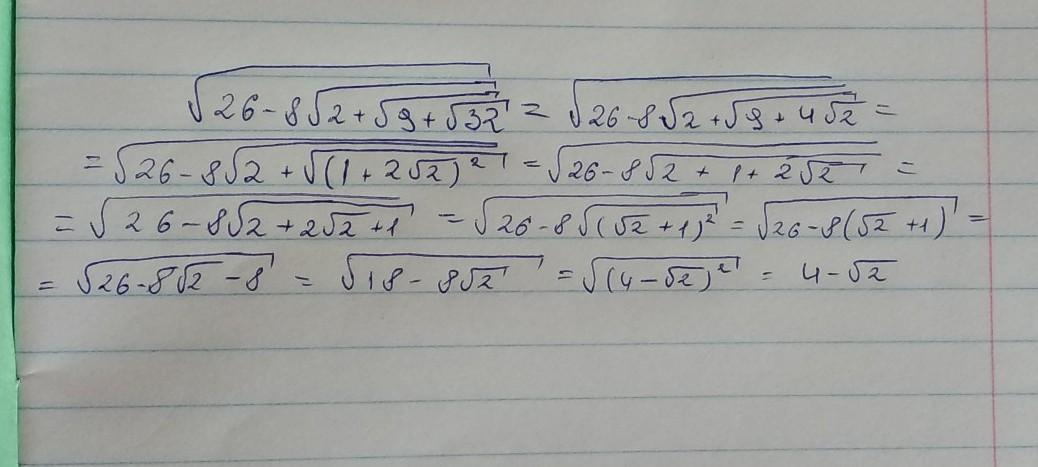 √(26-8√(2+√(9+√32))) = √(26-8√(2+√(9+4√2))) =
= √(26-8√(2+√((1+2√2)²))) = √(26-8√(2+1+2√2)) =
= √(26-8√(2+2√2+1)) = √(26-8√((√2+1)²)) = √(26-8(√2+1)) =
= √(26-8√2-8) = √(18-8√2) = √((4-√2)²) = 4-√2